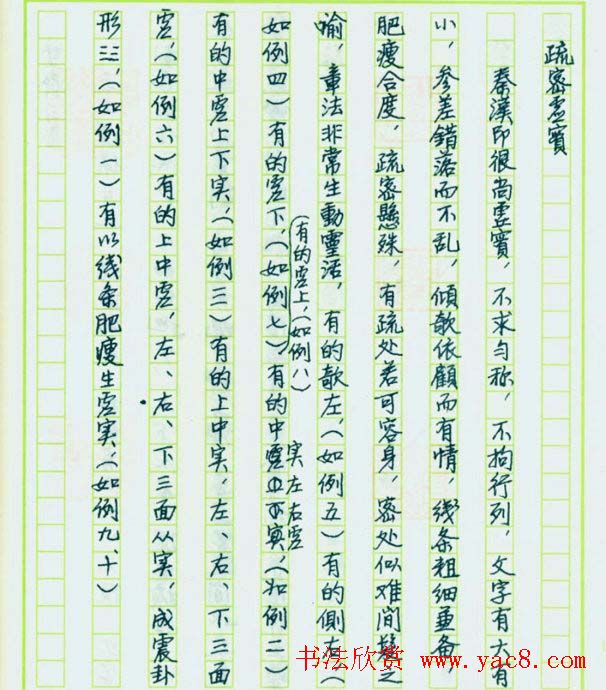 疏密虛實
秦漢印很尚虛實，不求勻称，不拘行列，文字有大有
小，參差錯落而不乱，傾欹依顧而有情，线条粗细並备，
肥瘦合度，疏密懸殊，有疏处若可容身，密处似难間髮之
喻，章法非常生動靈活，有的欹左，（如例五）有的側右（
（有的虚上，（如例八）
实左右虚
如例四）有的虚下，（如例七）有的中虚上下实，（如例二）
有的中虚上下实，（如例三）有的上中实，左、右、下三面
虚，（如例六）有的上中虚，左、右、下三面从实，成震卦
形☳，（如例一）有以线条肥瘦生虚实，（如例九、十）
书法欣赏 www.yac8.com